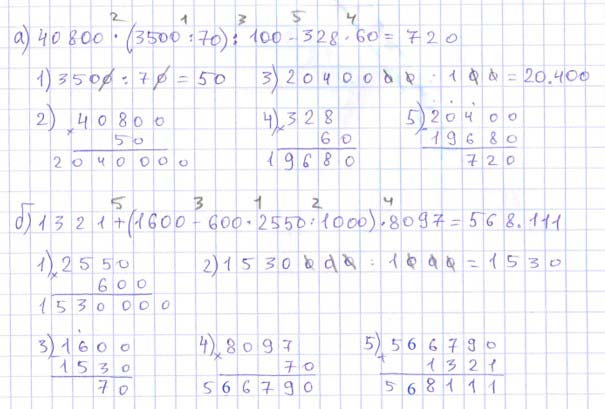 2 1 3 5 4
а) 40800 · (3500 : 70) : 100 - 328 · 60 = 720
1) 3500 : 70 = 50 3) 2040000 : 100 = 20.400
2) × 40800 4) × 328 5) - 20400
50 60 19680
2040000 19680 720
5 3 1 2 4
б) 1321 + (1600 - 600 · 2550 : 1000) · 8097 = 568.111
1) × 2550 2) 1530000 : 1000 = 1530
600
1530000
3) 1600 4) × 8097 5) + 566790
1530 70 1321
70 566790 568111